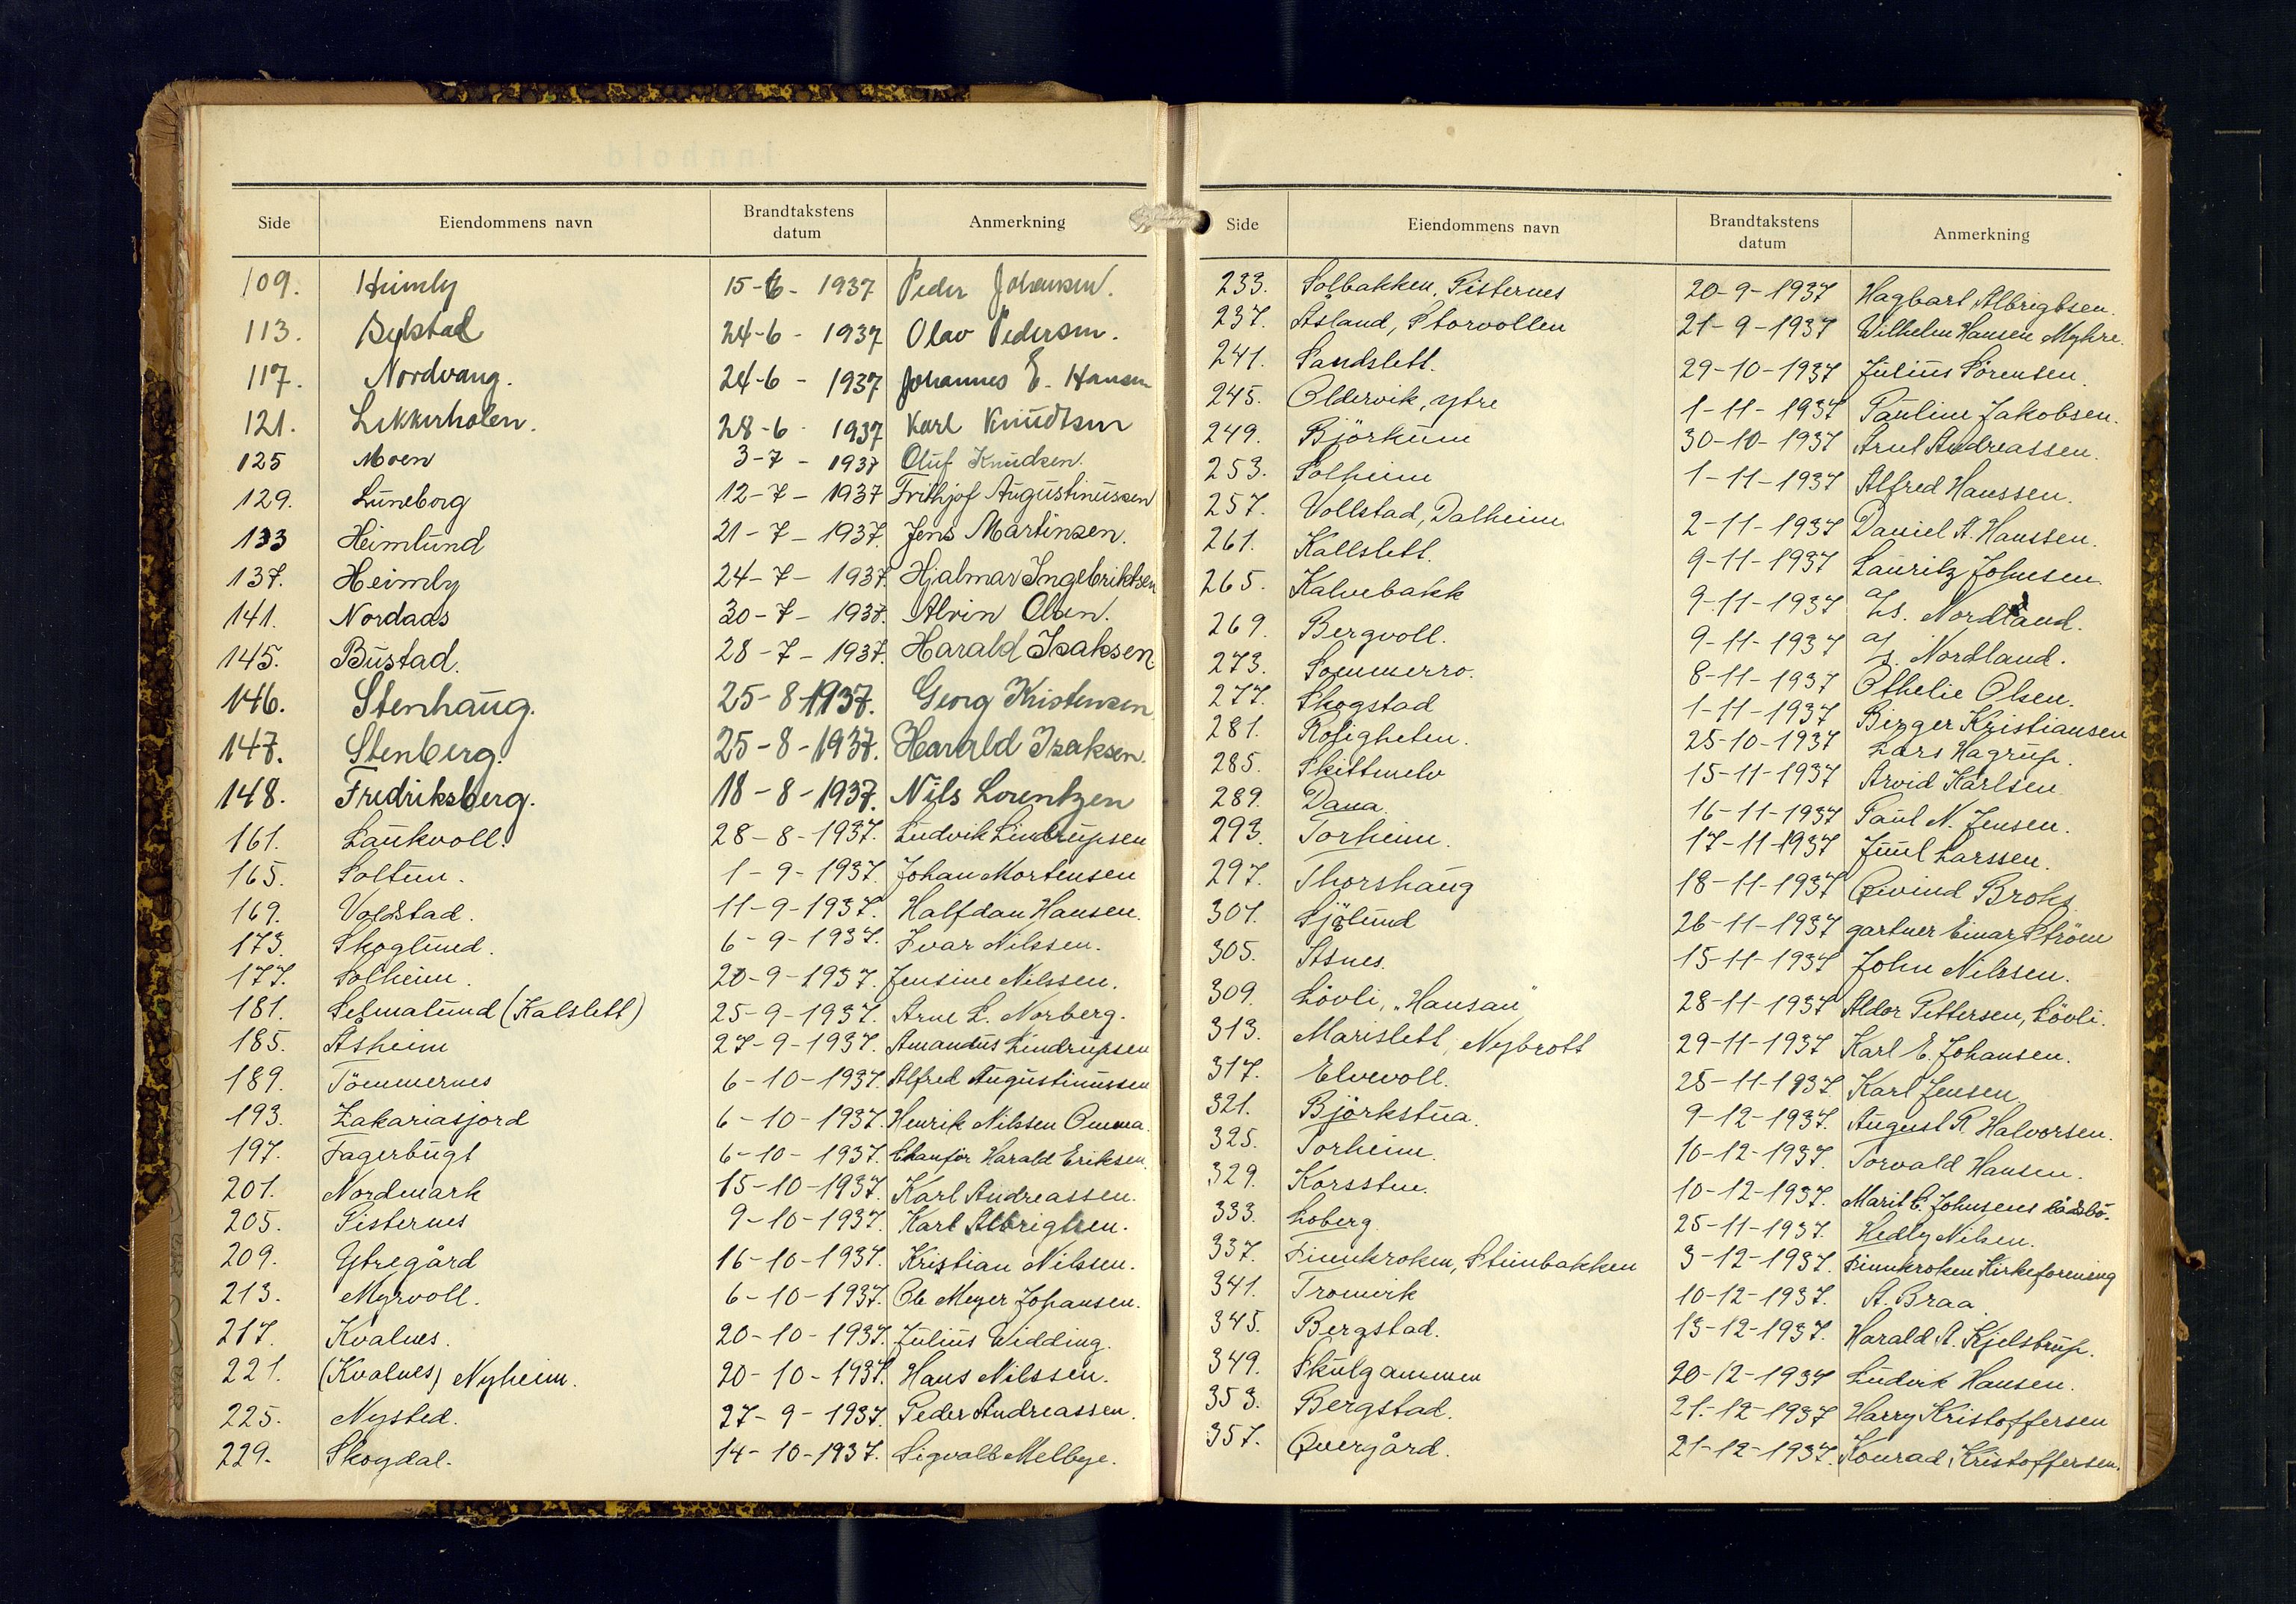 Side Eiendommens navn Brandtakstens datum Anmerkning
109. Heimly 15-6-1937 Peder Johansen.
113. Bylstad 24-6-1937 Olav Pedersen.
117. Nordvang. 24-6-1937 Johannes E. Hansen
121. Lekkerholen. 28-6-1937 Karl Knudtsen
125 Moen 3-7-1937 Oluf Knudsen.
129. Luneborg 12-7-1937 Frithjof Augustinussen
133 Heimlund 21-7-1937. Jens Martinsen.
137. Heimly 24-7-1937. Hjalmar Ingebriktsen
141. Nordaas 30-7-1937. Alvin Olsen.
145. Bustad. 28-7-1937. Harald Isaksen
146. Stenhaug. 25-8-1937. Georg Kristensen
147. Stenberg. 25-8-1937. Harald Isaksen.
148. Fredriksberg. 18-8-1937. Nils Lorentzen
161. Laukvoll. 28-8-1937. Ludvik Lindrupsen
165. Soltun. 1-9-1937. Johan Mortensen
169. Voldstad. 11-9-1937. Halfdan Hansen.
173. Skoglund. 6-9-1937. Ivar Nilssen.
177. Solheim. 20-9-1937. Jensine Nilssen.
181. Selmalund (Kalslett) 25-9-1937. Arne L. Norberg.
185. Asheim 27-9-1937. Amandus Lindrupsen
189. Tömmernes 6-10-1937. Alfred Augustinussen
193. Zakariasjord 6-10-1937. Henrik Nilssen Omma.
197. Fagerbugt 6-10-1937. Chauför Harald Eriksen.
201. Nordmark 15-10-1937. Karl Andreassen.
205. Tisternes 9-10-1937. Karl Albrigtsen.
209. Ytregård 16-10-1937. Kristian Nilsen.
213. Myrvoll. 6-10-1937. Ole Meyer Johansen.
217. Kvalnes. 20-10-1937. Julius Widding.
221. (Kvalnes) Nyheim. 20-10-1937. Hans Nilssen.
225. Nysted. 27-9-1937. Peder Andreassen.
229. Skogdal. 14-10-1937. Sigvald Melbye.
Side Eiendommens navn Brandtakstens datum Anmerkning
233. Solbakken, Tisternes 20-9-1937 Hagbart Albrigtsen.
237. Åsland, Storvollen 21-9-1937 Wilhelm Hansen Myhre.
241. Sandslett. 29-10-1937 Julius Sörensen.
245. Oldervik, ytre 1-11-1937 Pauline Jakobsen.
249. Björkum 30-10-1937 Arnt Andreassen.
253. Solheim 1-11-1937 Alfred Hanssen.
257. Vollstad, Dalheim 2-11-1937 Daniel A. Hanssen.
261. Kallslett. 9-11-1937 Lauritz Johnsen.
265. Kalvebakk 9-11-1937 Nordland.
269. Bergvoll. 9-11-1937 Nordland.
273. Sommerro. 8-11-1937 Othelie Olsen.
277. Skogstad 1-11-1937 Birger Kristiansen
281. Roligheten. 25-10-1937 Lars Hagrup.
285. Skittnelv 15-11-1937 Arvid Karlsen
289. Dana 16-11-1937 Paul N. Jensen.
293. Torheim. 17-11-1937 Juul Larssen.
297. Thorshaug 18-11-1937 Öivind Broks.
301. Sjölund 26-11-1937 gartner Einar Ström
305. Asnes. 15-11-1937 John Nilssen.
309. Lövli, "Hansan" 28-11-1937 Aldor Pettersen, Lövli.
313. Marislett, Nybrott 29-11-1937 Karl E. Johansen.
317. Elvevoll. 25-11-1937. Karl Jensen.
321. Björkstua. 9-12-1937. August R. Halvorsen.
325. Torheim. 16-12-1937. Torvald Hansen.
329. Korsstue. 10-12-1937. Marit E. Johnsens dödsbo.
333. Loberg. 25-11-1937. Hedly Nilsen.
337. Finnkroken, Steinbakken 3-12-1937. Finnkroken Kirkeforening
341. Tromvik 10-12-1937. A. Braa.
345. Bergstad. 13-12-1937. Harald A. Kjelstrup.
349. Skulgammen 20-12-1937 Ludvik Hansen.
353. Bergstad. 21-12-1937 Harry Kristoffersen
357. Övergård. 21-12-1937. Konrad Kristoffersen.